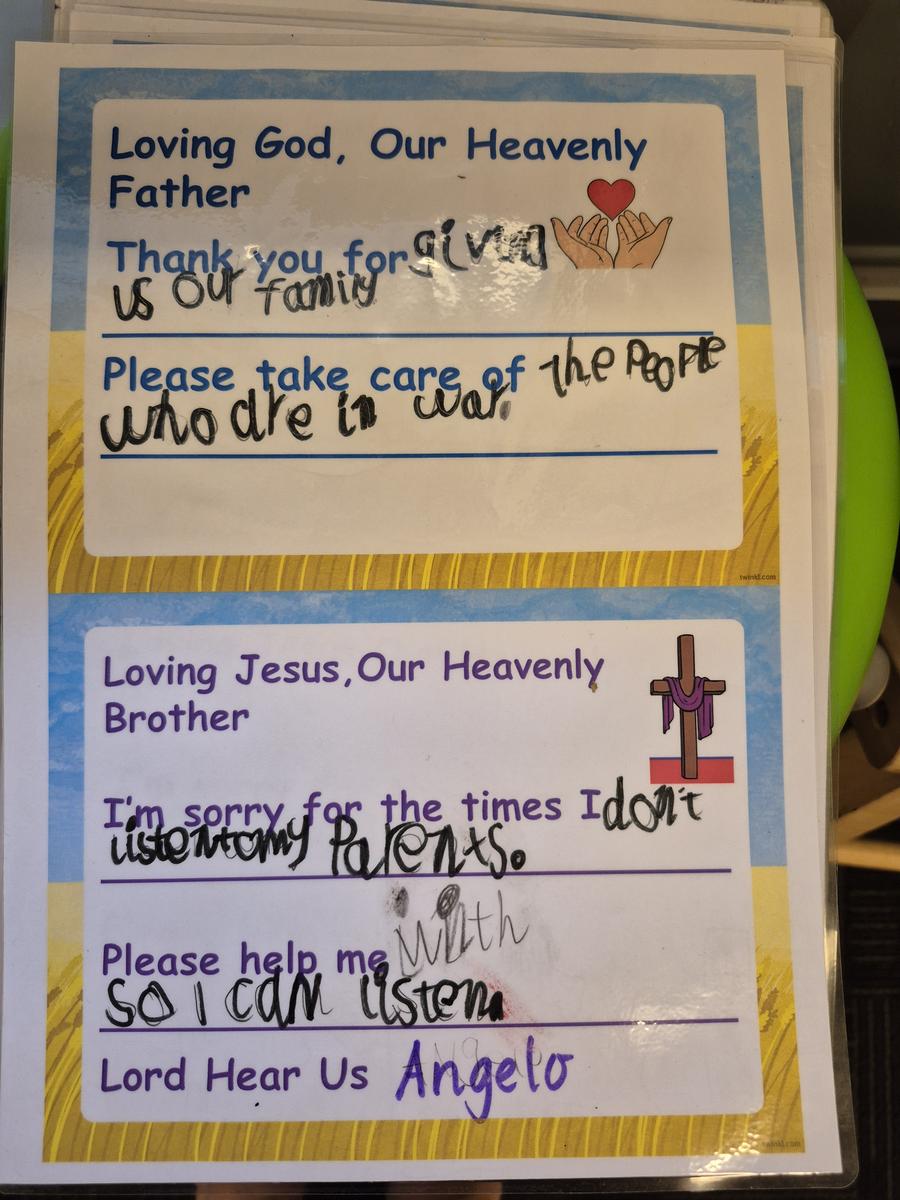 Loving God, Our Heavenly
Father
Thank you for giving
us our family
Please take care of the People
who are in war.
twinkl.com
Loving Jesus,Our Heavenly
Brother
I'm sorry for the times I don't
listen to my Parents.
Please help me with
so I can listen
Lord Hear Us Angelo
twinkl.com